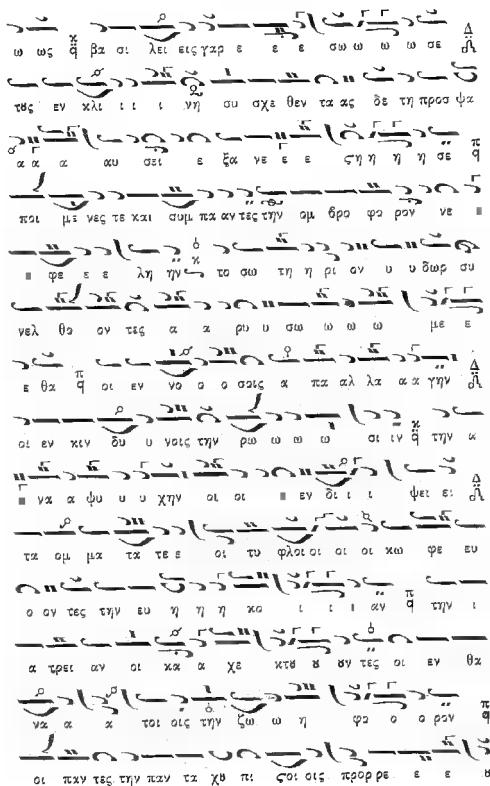 ω ως κ ϥ βα σι λει εις γαρ ε ε ε σω ω ω ω σε Δ
τȣς εν κλι ι ι ι νη συ σχε θεν τα ας δε τη προσ ψα
α α α αυ σει ε ξα νε ε ε ζη η η η σε π ϥ
ποι με νες τε και συμ πα αν τες την ομ βρο φο ρον νε
φε ε ε λη ην κ το σω τη η ρι ον υ υ δωρ συ
νελ θο ον τες α α ρυ υ σω ω ω ω με ε
ε θα π ϥ οι εν νο ο ο σοις α πα αλ λα α α γην Δ
οι εν κιν δυ υ νοις την ρω ω ω ω σι ιν κ ϥ την α
να α ψυ υ υ χην οι οι εν δι ι ι ψει ει Δ
τα ομ μα τα τε ε οι τυ φλοι οι οι οι κω φε ευ
ο ον τες την ευ η η η κο ι ι ι αν π ϥ την ι
α τρει αν οι κα α χε κτȣ ȣ ȣν τες οι εν θα
να α α τοι οις την ζω ω η φο ο ο ρον π ϥ
οι παν τες την παν τα χȣ πι ζοι οις προρ ρε ε ε ȣ